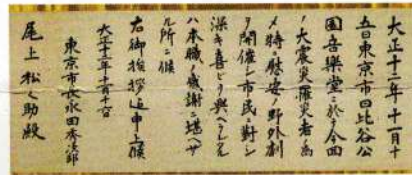 大正十二年十一月十
五日東京市日比谷公
園音樂堂ニ於テ今回
ノ大震災罹災者ノ為
メ特ニ慰安ノ野外劇
ヲ開催シ市民ニ對シ
深キ喜ビヲ與ヘラレタル
ハ本職ノ感謝ニ堪ヘザ
ル所ニ候
右御挨拶迄申上候
大正十二年十一月十六日
東京市長永田秀次郎
尾上松之助殿